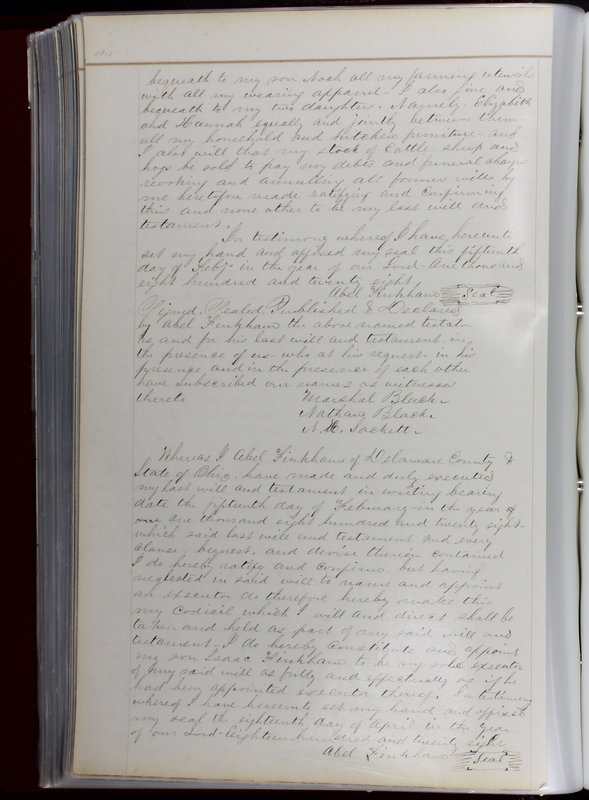 bequeath to my son Noah all my farming utensils
with all my wearing apparel - I also give and
bequeath to my two daughters. Namely. Elizabeth
and Hannah equally and jointly between them
all my household and kitchen furniture - and
I also will that my stock of Cattle, sheep and
hogs be sold to pay my debts and funeral charges
revoking and annulling all former wills by
me heretofore made ratifying and confirming
this and none other to be my last will and
testament.
In testimony whereof I have hereunto
set my hand and affixed my seal this fifteenth
day of Feby in the year of our Lord - One thousand
eight hundred and twenty eight
Abel Finkham Seal
Signed, Sealed, Published & Declared
by Abel Finkham the above named testator
as, and for his last will and testament, in
the presence of us - who at his request - in his
presence, and in the presence of each other
have subscribed our names as witnesses
thereto
Marshal Black
Nathan Black
N. Sackett
Whereas I Abel Finkham of Delaware County &
State of Ohio. have made and duly executed
my last will and testament in writing bearing
date the fifteenth day of February - in the year of
one One thousand eight hundred and twenty eight
which said last will and testament and every
clause, bequest, and devise therein contained
I do hereby ratify and confirm. but having
neglected in said will to name and appoint
an executor do therefore hereby make this
my Codicil which I will and direct shall be
taken and held as part of my said will and
testament. I do hereby Constitute and appoint
my son Isaac Finkham to be my sole executor
of my said will as fully and effectually as if he
had been appointed executor thereof. In testimony
whereof I have hereunto set my hand and affixed
my seal the eighteenth day of April - in the year
of our Lord - Eighteen hundred and twenty eight
Abel Finkham Seal